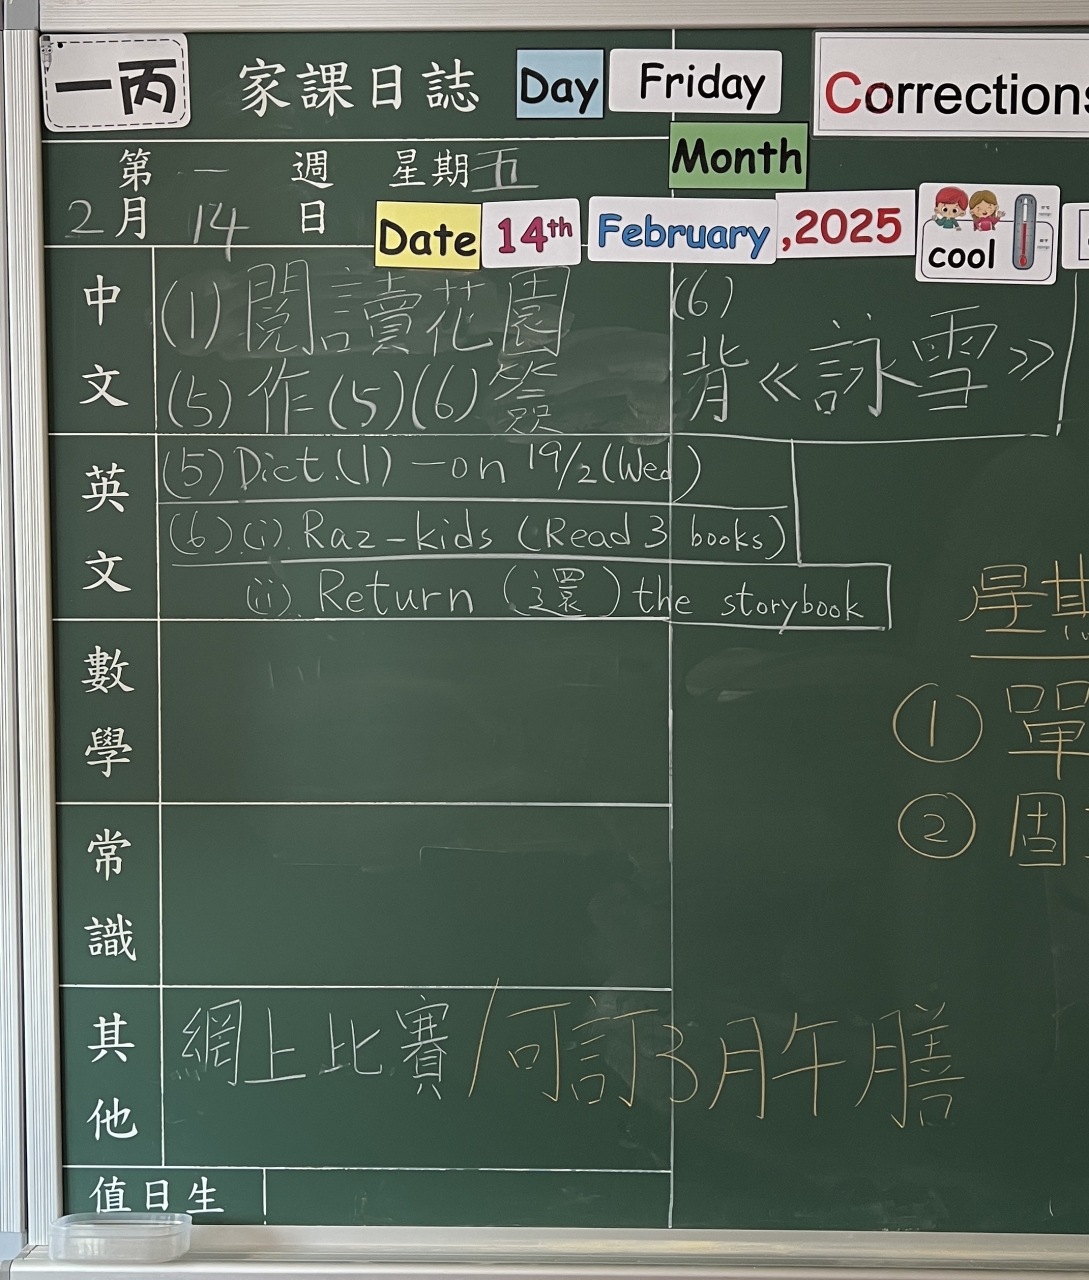 一丙 家課日誌 Day Friday Corrections
Month
第一週 星期五
2月14日 Date 14th February ,2025 cool
中文 (1) 閱讀花園 (6)
(5) 作(5)(6)簽 背《詠雪》
英文 (5) Dict.(1) – on 19/2 (Wed)
(6) (i). Raz-kids (Read 3 books)
(ii). Return (還) the storybook
星期
① 單
② 固
數學
常識
其他 網上比賽/可訂3月午膳
值日生